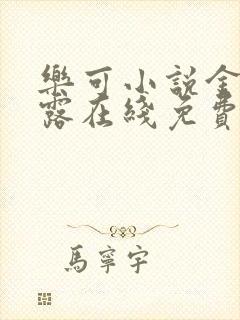 樂可小說金
露在綫免費
馬寧宇